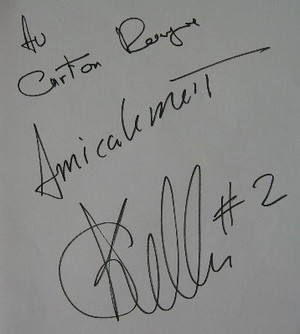 Au
Carton Rouge
Amicalement
#2